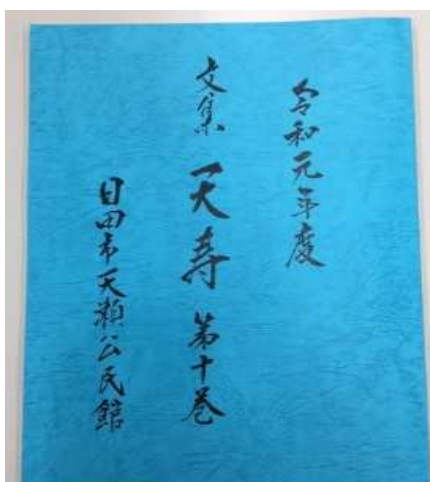 令和元年度
文集 天寿 第十巻
日田市天瀬公民館